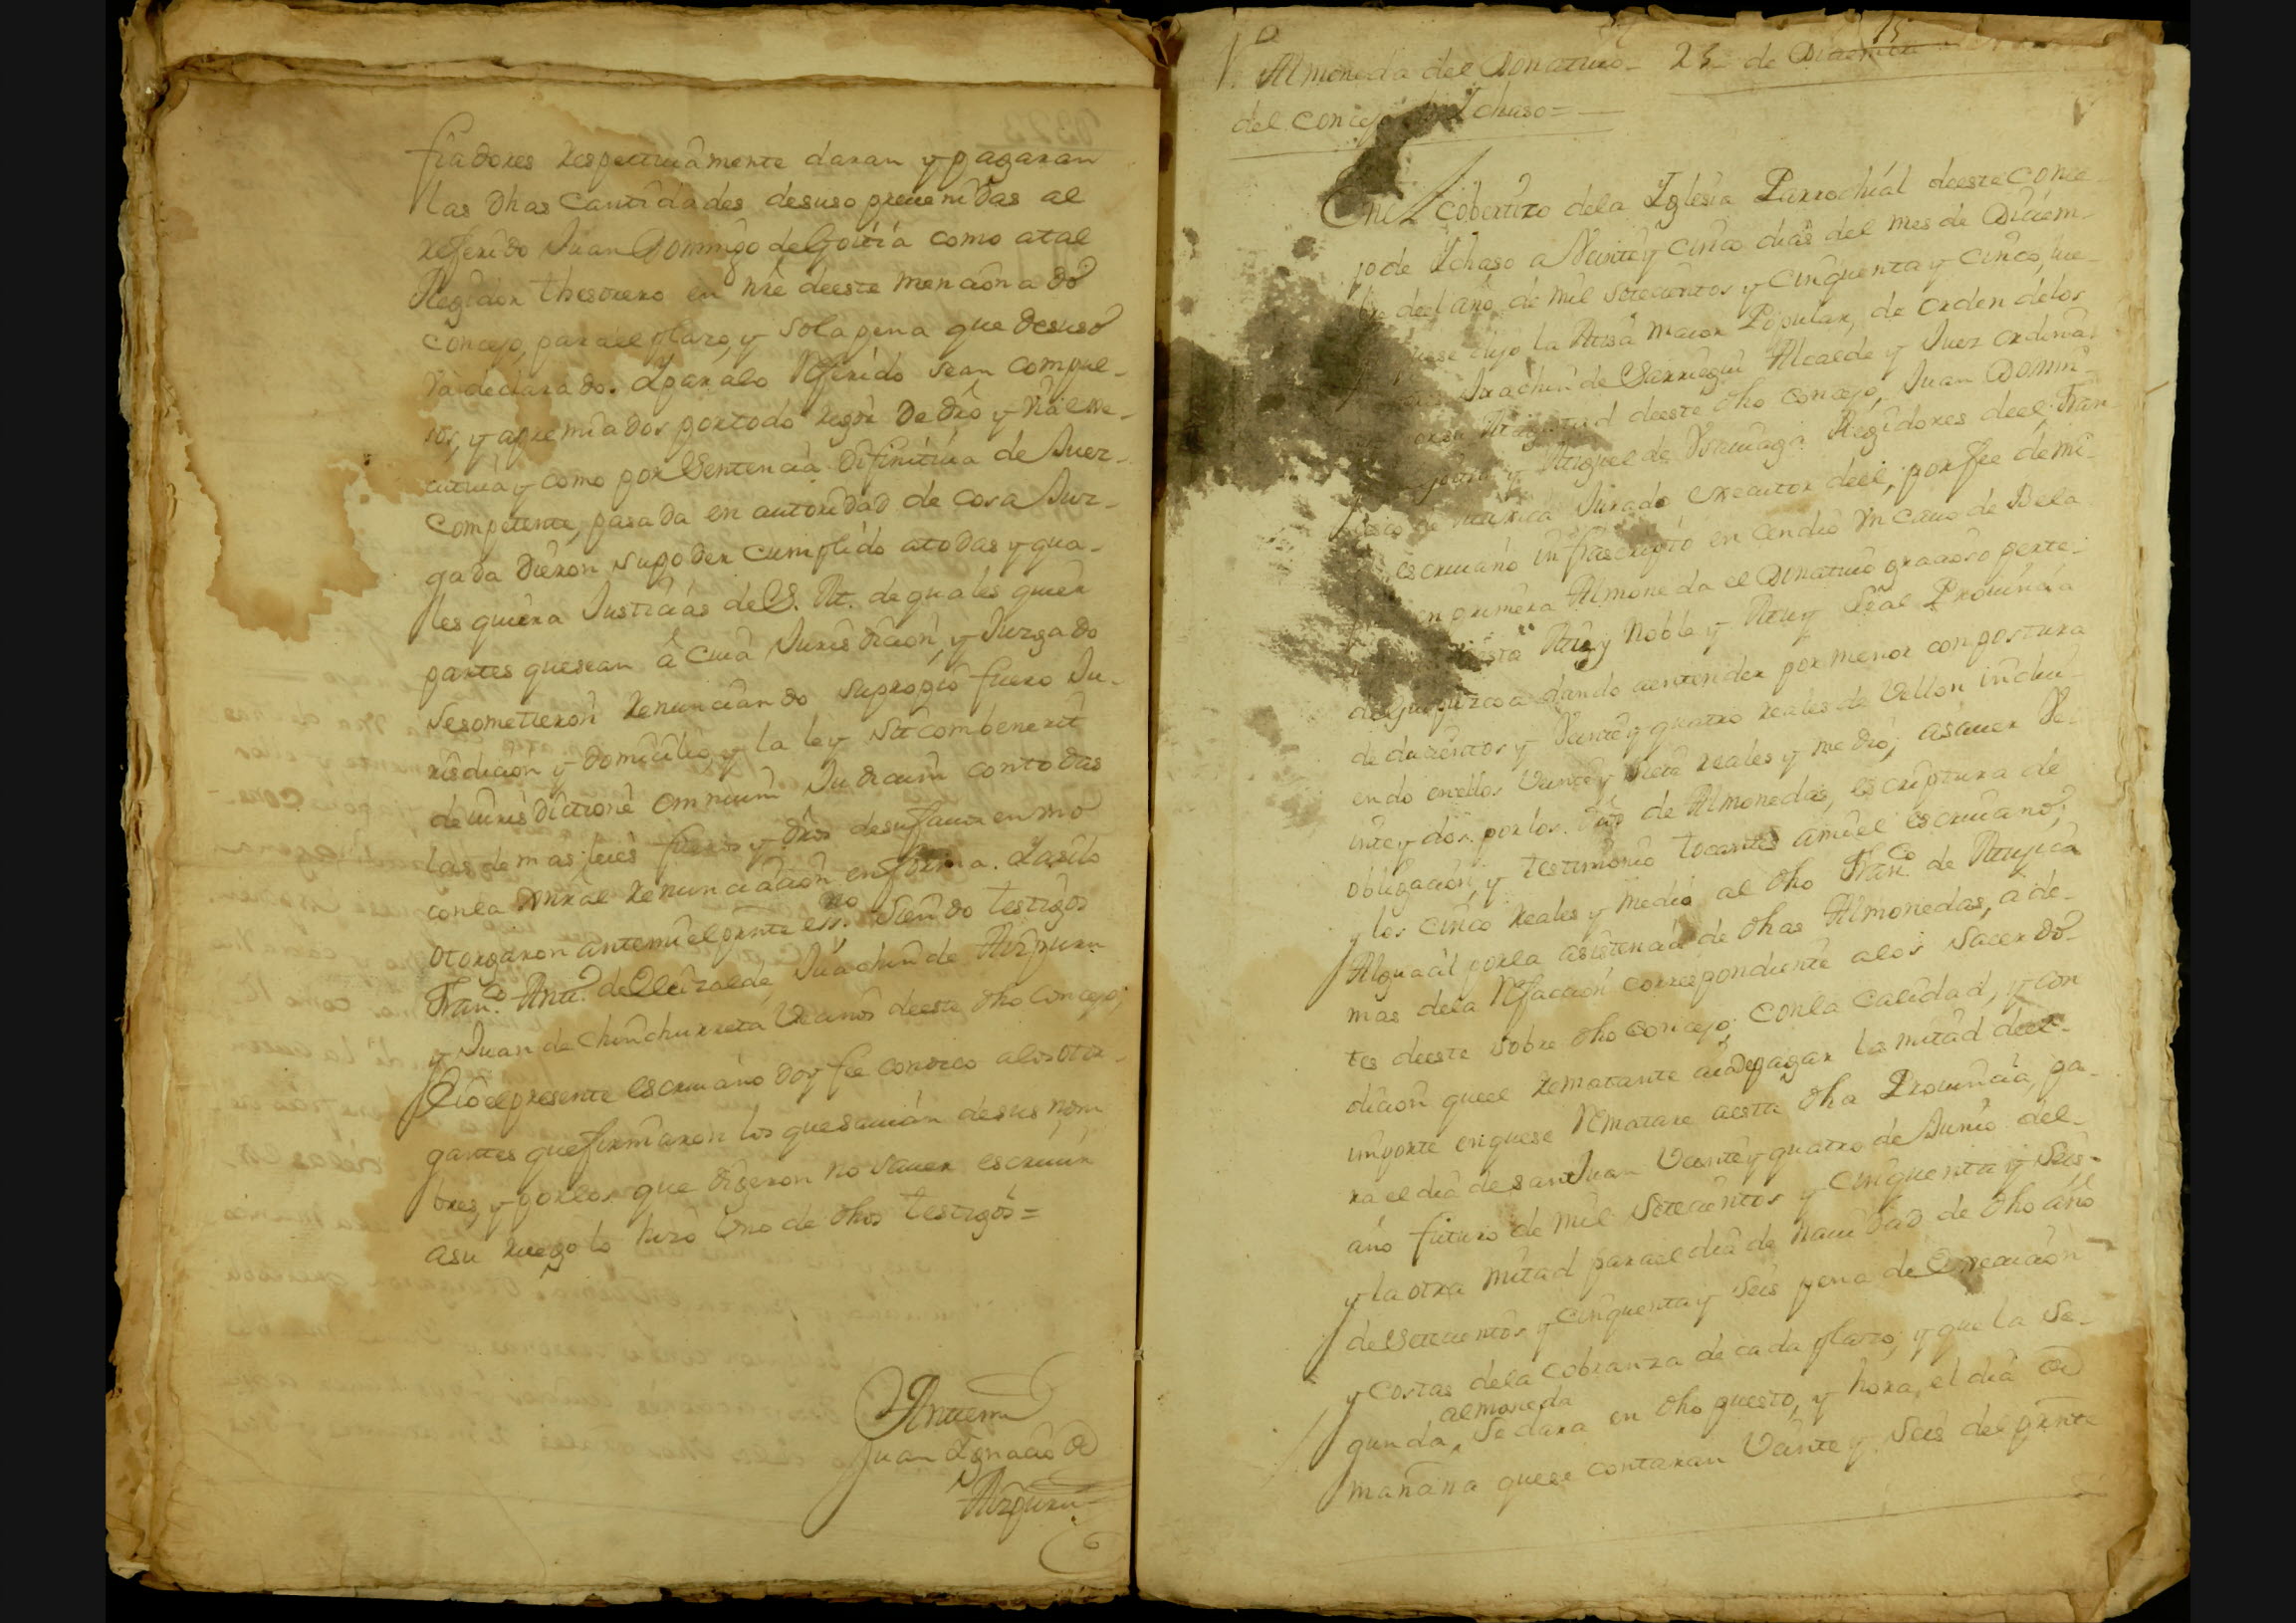 fiadores respectiuamente daran y pagaran
las dhas Cantidades desuso preuenidas al
referido Juan Domingo de Goitia como atal
Regidor thesorero en nre deeste mencionado
Concejo, parael plazo, y sola pena que desuso
va declarado. Y paralo Referido sean compul-
sos, y apremiados portodo rigor de dro y via exe-
cutiua y como por Sentencia difinitiua de Juez
Competente, pasada en autoridad de cosa Juz-
gada dieron supoder cumplido atodas y qua-
lesquiera Justicias de S. M. de quales quier
partes quesean â cuia Jurisdicion, y Juzgado
sesometieron Renunciando supropio fuero Ju-
risdicion y domicilio, y la ley sit combenerit
deiurisdictione omnium Judicum contodas
las demas leies fueros y dros desufauor enmo
conla gnral Renunciacion enforma. Yasilo
otorgaron antemi elprnte essno. siendo testigos
Franco. Anto. de Oleizalde, Juachin de Aizpuru
y Juan de Chinchurreta Vecinos deeste dho Concejo;
Eio elpresente escriuano doy fee conozco alos otor-
gantes quefirmaron los quesauian desus nom
bres, y porlos que digeron no sauer escriuir
asu ruego lo hizo Uno de dhos testigos=
Antemi
Juan Ignacio de
Aizpuru
15
Almoneda del Donatiuo 25 de Diciembre
del concejo Ichaso=
En el cobertizo dela Iglesia Parrochial deeste conce-
jo de Ichaso a Veintey cinco dias del mes de Diciem-
bre del año de mil setecientos y cinquenta y cinco, lue-
se dijo la Misa maior Popular, de orden delos
Juachin de Sarriegui Alcalde y Juez ordina-
deeste dho concejo, Juan Domin-
Goitia y Miguel de Regidores deel, Fran
de Mujica Jurado executor deel, por fee de mi
escriuano infrascripto en cendio un cauo de Bela
en primera Almoneda el Donatiuo gracioso perte-
esta Muy Noble y Muy Leal Prouincia
de Guipuzcoa dando aentender por menor con postura
de ducientos y Veinte y quatro reales de Vellon inclui-
endo enellos Veinte y siete reales y medio; asauer Ve-
inte y dos porlos dros de Almonedas, escriptura de
obligacion, y testimonio tocantes ami el escriuano;
y los cinco reales y medio al dho Franco. de Mujica
Alguacil porla asistencia de dhas Almonedas, a de-
mas dela Refaccion correspondiente alos Sacerdo-
tes deeste sobre dho concejo; conla calidad, y con
dicion queel Rematante aiadepagar la mitad deel
importe enquese Rematare aesta dha Prouincia, pa-
ra el dia de san Juan Veinte y quatro de Junio del
año futuro de mil setecientos y cinquenta y seis
y la otra mitad parael dia de Nauidad de dho año
de Setecientos y cinquenta y seis pena de Execucion
y costas dela cobranza de cada plazo, y que la Se-
gunda almoneda Sedara en dho puesto, y hora, el dia de
mañana quese contaran Veinte y seis del prnte